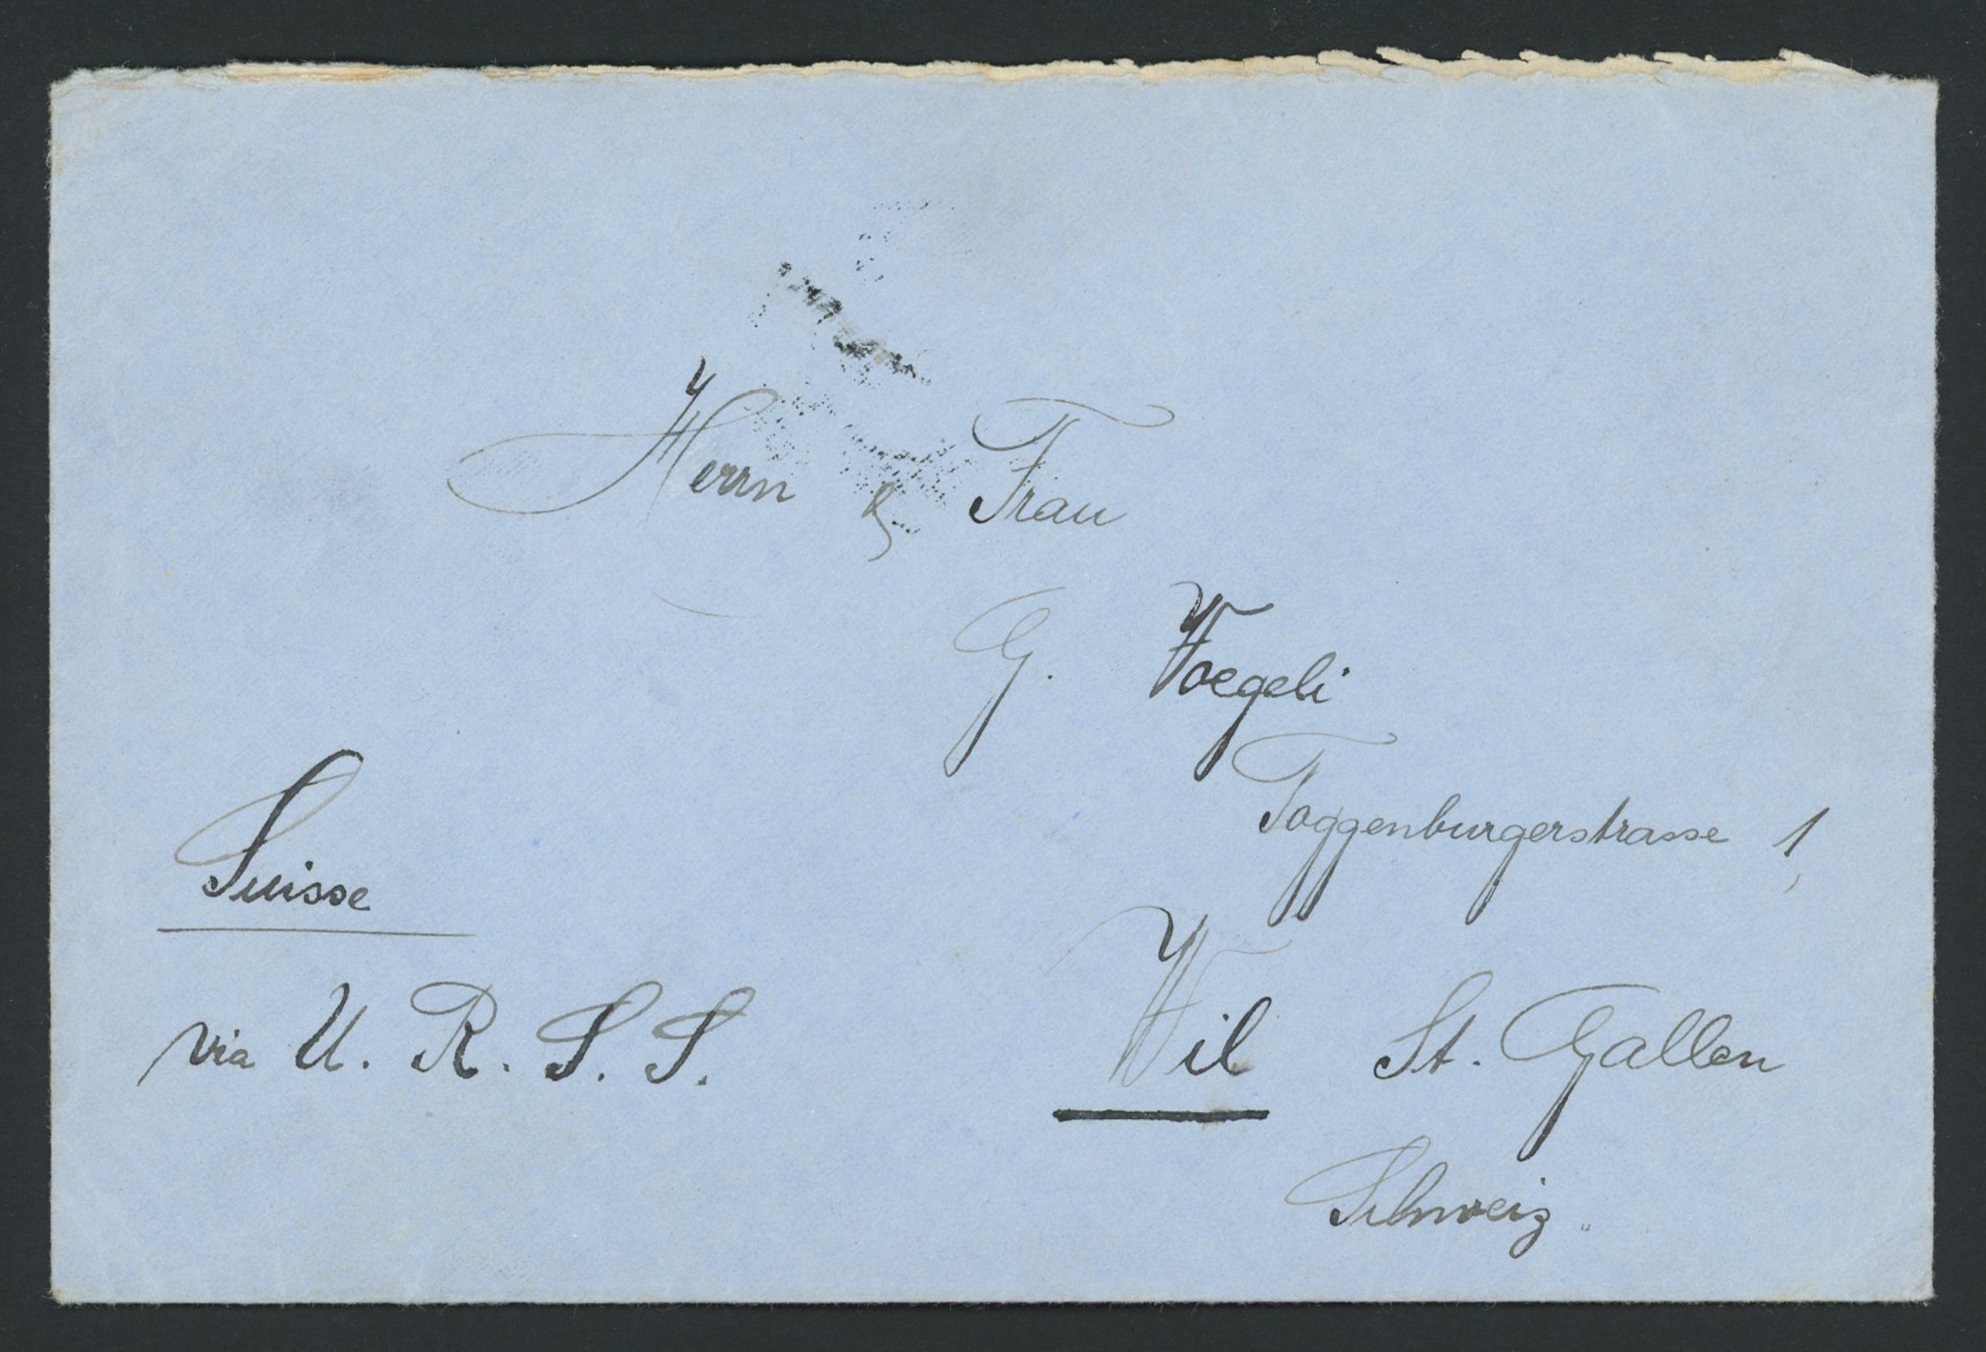 Herrn & Frau
G. Voegeli
Toggenburgerstrasse 1,
Wil St. Gallen
Schweiz.
Suisse
via U. R. S. S.